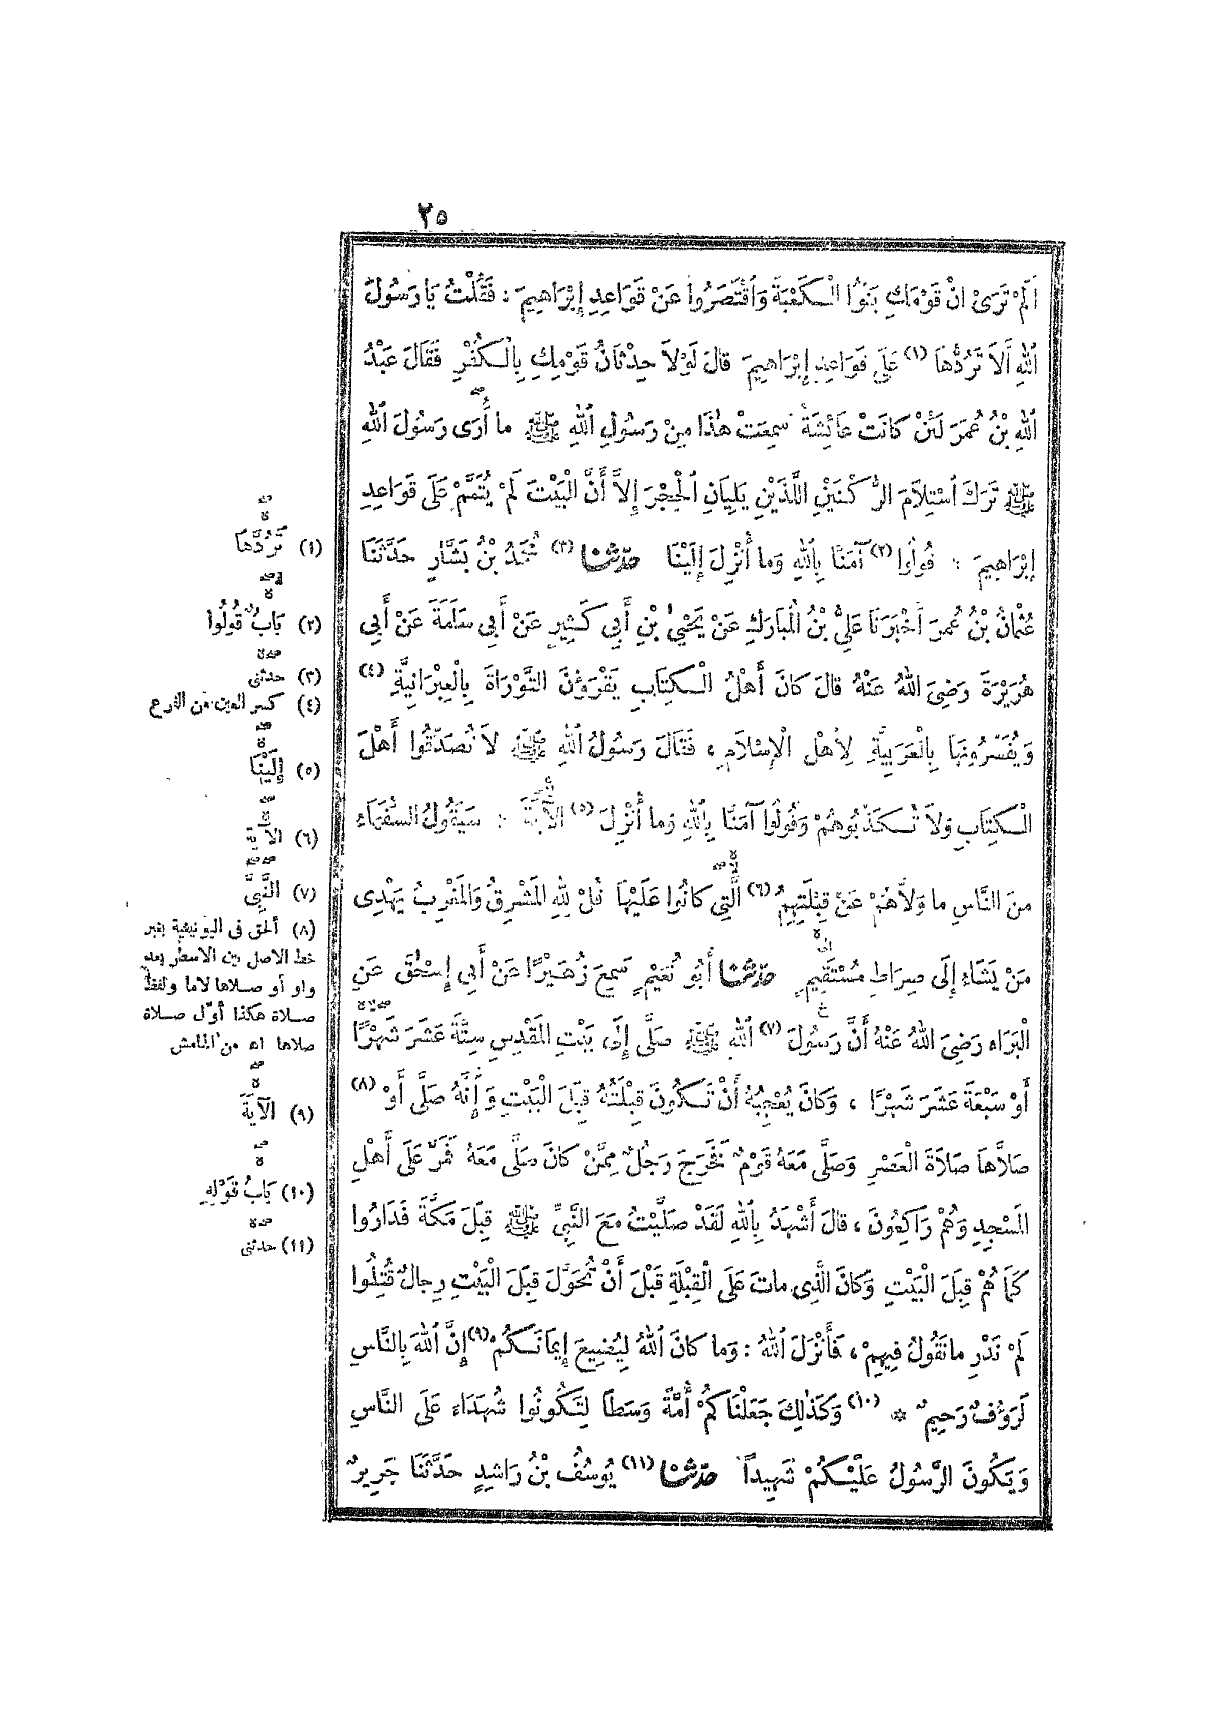 ٢٥
أَلَمْ تَرَىْ أَنَّ قَوْمَكِ بَنَوُا الْكَعْبَةَ وَاقْتَصَرُوا عَنْ قَوَاعِدِ إِبْرَاهِيمَ : فَقُلْتُ يَا رَسُولَ
اللهِ أَلاَ تَرُدُّهَا (١) عَلَى قَوَاعِدِ إِبْرَاهِيمَ قالَ لَوْلاَ حِدْثَانُ قَوْمِكِ بِالْكُفْرِ فَقَالَ عَبْدُ
اللهِ بْنُ عُمَرَ لَئِنْ كانَتْ عائِشَةُ سَمِعَتْ هٰذَا مِنْ رَسُولِ اللهِ ﷺ ما أُرَى رَسُولَ اللهِ
ﷺ تَرَكَ اسْتِلاَمَ الرُّكْنَيْنِ اللَّذَيْنِ يَلِيَانِ الْحِجْرَ إِلاَّ أَنَّ الْبَيْتَ لَمْ يُتَمَّمْ عَلَى قَوَاعِدِ
إِبْرَاهِيمَ : قُولُوا (٢) آمَنَّا بِاللهِ وَما أُنْزِلَ إِلَيْنَا حدّثنا (٣) مُحَمَّدُ بْنُ بَشَّارٍ حَدَّثَنَا
عُثْمانُ بْنُ عُمَرَ أَخْبَرَنَا عَلِيُّ بْنُ الْمُبَارَكِ عَنْ يَحْيىٰ بْنِ أَبِي كَثِيرٍ عَنْ أَبِي سَلَمَةَ عَنْ أَبِي
هُرَيْرَةَ رَضِيَ اللهُ عَنْهُ قالَ كانَ أَهْلُ الْكِتَابِ يَقْرَؤُنَ التَّوْرَاةَ بِالْعِبْرَانِيَّةِ (٤)
وَيُفَسِّرُونَهَا بِالْعَرَبِيَّةِ لِأَهْلِ الْإِسْلاَمِ ، فَقَالَ رَسُولُ اللهِ ﷺ لاَ تُصَدِّقُوا أَهْلَ
الْكِتَابِ وَلاَ تُكَذِّبُوهُمْ وَقُولُوا آمَنَّا بِاللهِ وَما أُنْزِلَ (٥) الآيَةَ : سَيَقُولُ السُّفَهَاءُ
مِنَ النَّاسِ ما وَلاَّهُمْ عَنْ قِبْلَتِهِمُ (٦) الَّتِي كانُوا عَلَيْهَا قُلْ لِلهِ الْمَشْرِقُ وَالْمَغْرِبُ يَهْدِي
مَنْ يَشَاءُ إِلَى صِرَاطٍ مُسْتَقِيمٍ حدّثنا أَبُو نُعَيْمٍ سَمِعَ زُهَيْرًا عَنْ أَبِي إِسْحٰقَ عَنِ
الْبَرَاءِ رَضِيَ اللهُ عَنْهُ أَنَّ رَسُولَ (٧) اللهِ ﷺ صَلَّى إِلَى بَيْتِ الْمَقْدِسِ سِتَّةَ عَشَرَ شَهْرًا
أَوْ سَبْعَةَ عَشَرَ شَهْرًا ، وَكانَ يُعْجِبُهُ أَنْ تَكُونَ قِبْلَتُهُ قِبَلَ الْبَيْتِ وَإِنَّهُ صَلَّى أَوْ (٨)
صَلاَّهَا صَلاَةَ الْعَصْرِ وَصَلَّى مَعَهُ قَوْمٌ فَخَرَجَ رَجُلٌ مِمَّنْ كانَ صَلَّى مَعَهُ فَمَرَّ عَلَى أَهْلِ
الْمَسْجِدِ وَهُمْ رَاكِعُونَ ، قالَ أَشْهَدُ بِاللهِ لَقَدْ صَلَّيْتُ مَعَ النَّبِيِّ ﷺ قِبَلَ مَكَّةَ فَدَارُوا
كَمَا هُمْ قِبَلَ الْبَيْتِ وَكانَ الَّذِي ماتَ عَلَى الْقِبْلَةِ قَبْلَ أَنْ تُحَوَّلَ قِبَلَ الْبَيْتِ رِجالٌ قُتِلُوا
لَمْ نَدْرِ ما نَقُولُ فِيهِمْ ، فَأَنْزَلَ اللهُ : وَما كانَ اللهُ لِيُضِيعَ إِيمَانَكُمْ (٩) إِنَّ اللهَ بِالنَّاسِ
لَرَؤُفٌ رَحِيمٌ * (١٠) وَكَذٰلِكَ جَعَلْنَاكُمْ أُمَّةً وَسَطًا لِتَكُونُوا شُهَدَاءَ عَلَى النَّاسِ
وَيَكُونَ الرَّسُولُ عَلَيْكُمْ شَهِيدًا حدّثنا (١١) يُوسُفُ بْنُ رَاشِدٍ حَدَّثَنَا جَرِيرٌ
(١) تَرُدَّهَا
(٢) بَابٌ قُولُوا
(٣) حدثني
(٤) كسر العين من الفرع
(٥) إِلَيْنَا
(٦) الآية
(٧) النَّبِيَّ
(٨) ألحق في اليونينية بغير
خط الاصل بين الاسطر بعد
واو أو صلاها لاما ولفظ
صلاة هكذا أوّل صلاة
صلاها اه من الهامش
(٩) الآيَةَ
(١٠) بَابُ قَوْلِهِ
(١١) حدثني